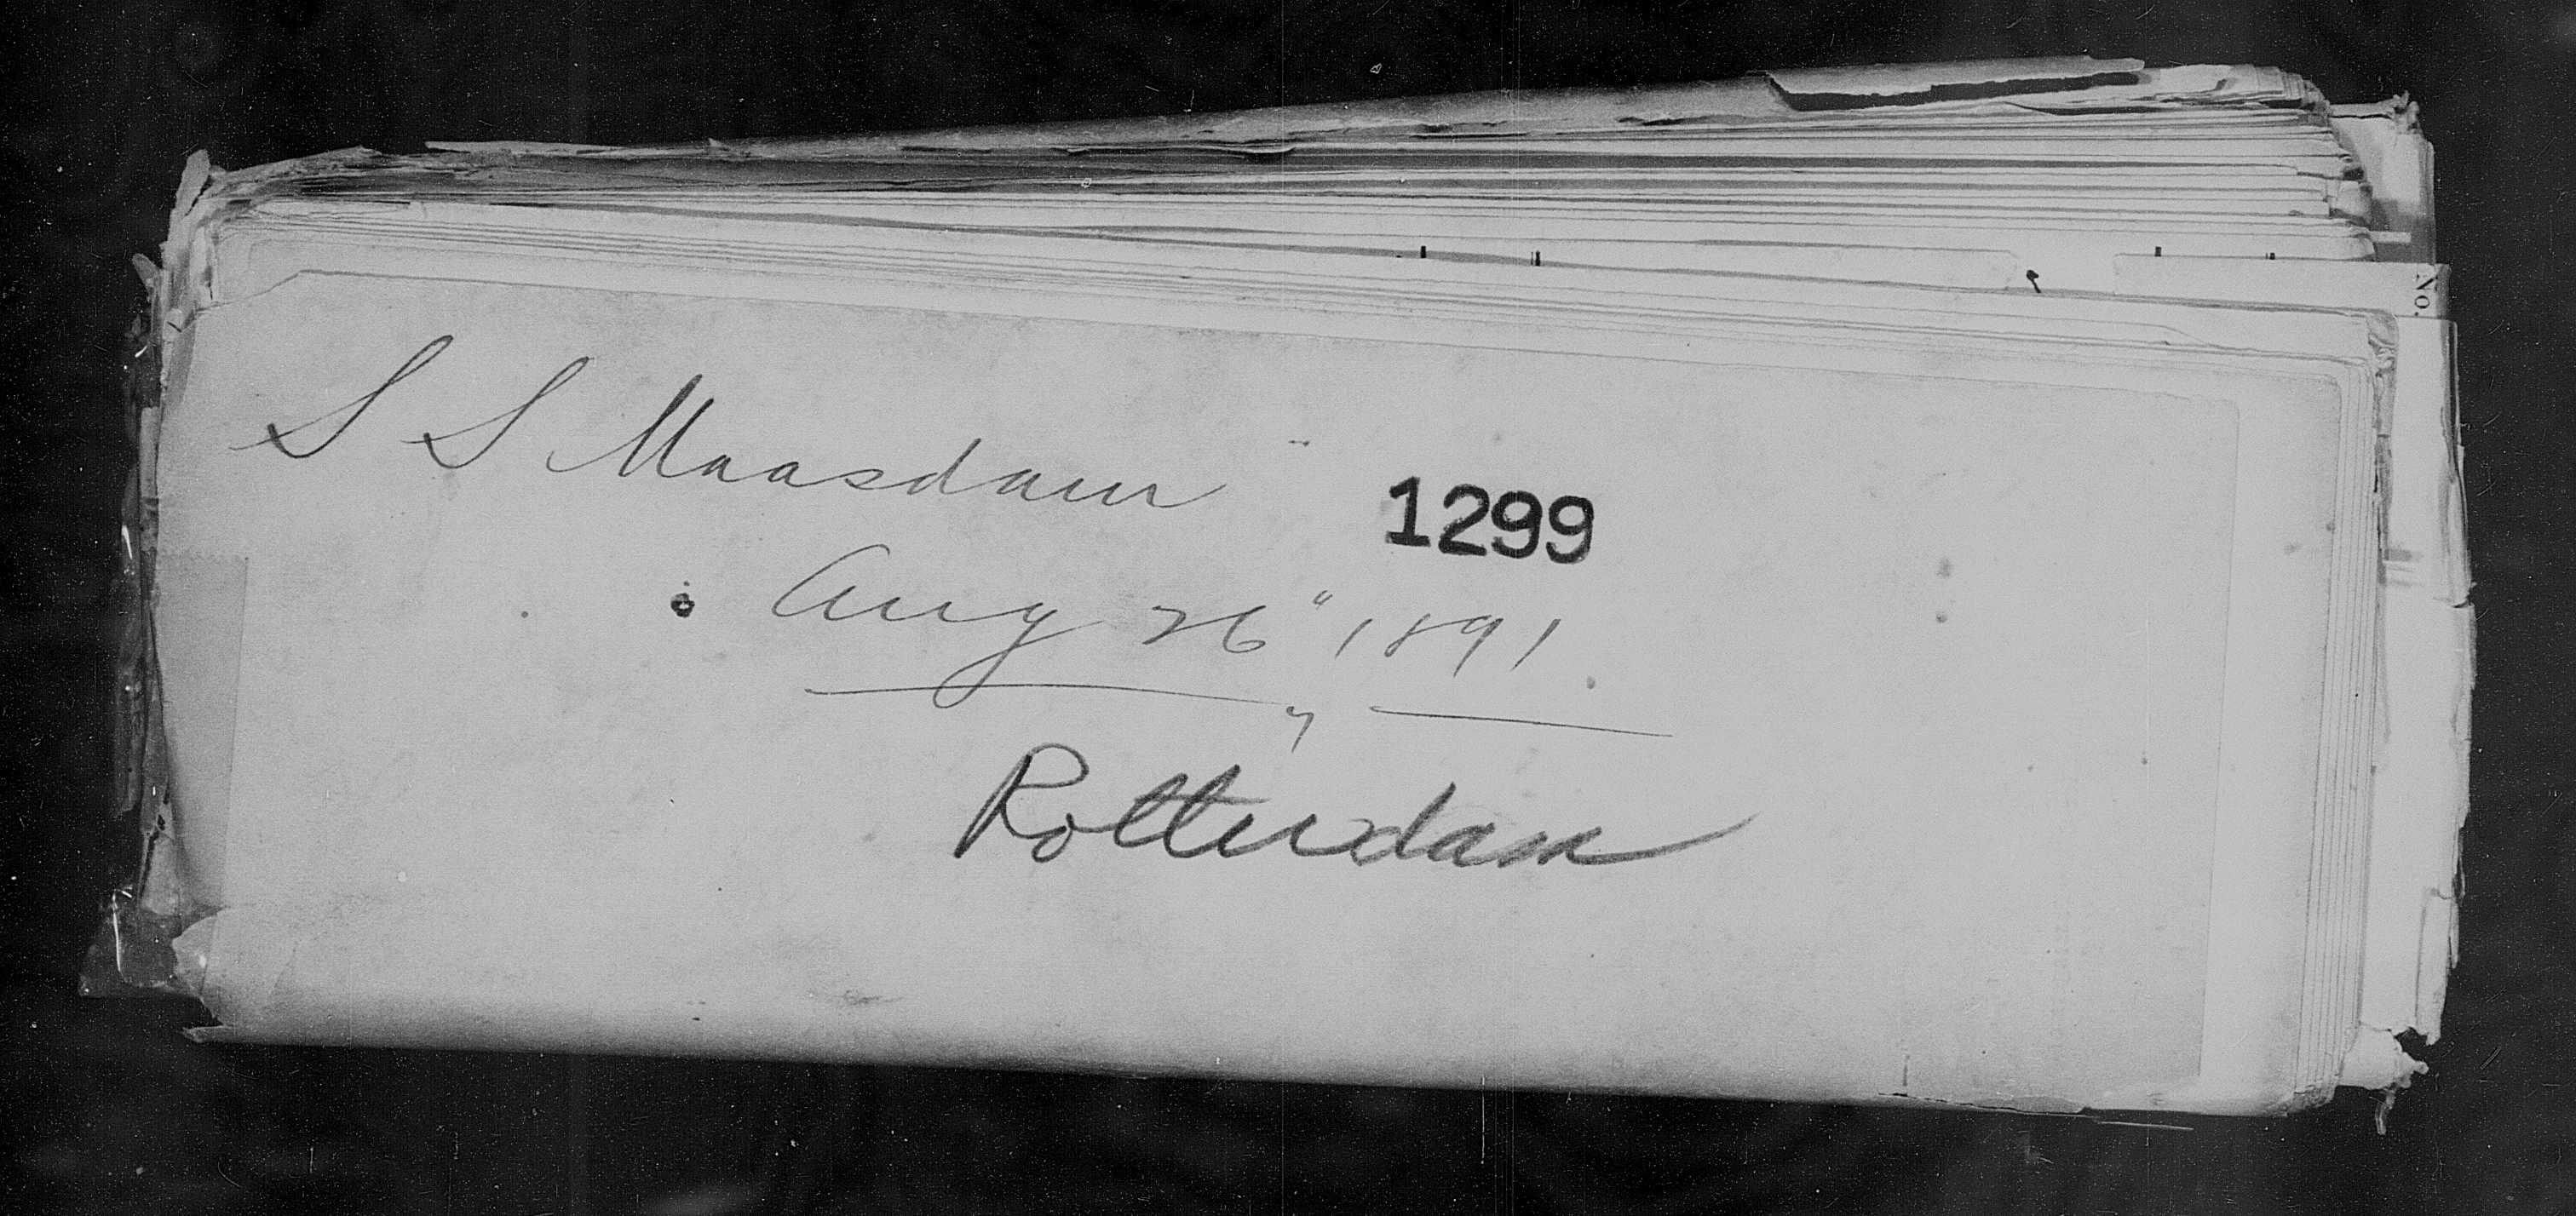 No.
S S Maasdam
1299
Aug 26" 1891
Rotterdam